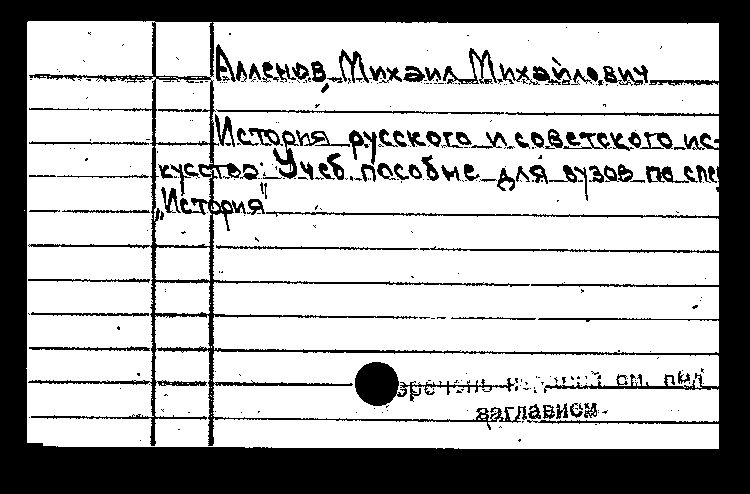 Алленов, Михаил Михайлович
История русского и советского ис-
кусства: Учеб. пособие для вузов по спец
„История"
см. под
заглавием.